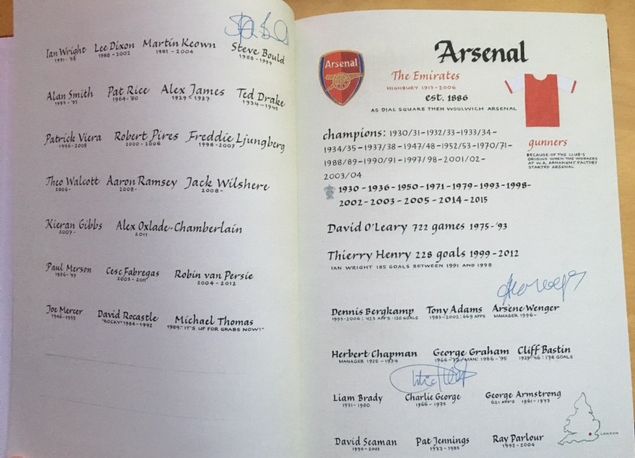 Ian Wright Lee Dixon Martin Keown Steve Bould
1988 - 2002 1988 - 1999
Alan Smith Pat Rice Alex James Ted Drake
1964 - '80 1934 - 1945
Patrick Viera Robert Pires Freddie Ljungberg
1996 - 2005 2000 - 2006 1998 - 2007
Theo Walcott Aaron Ramsey Jack Wilshere
2006 - 2008 - 2008 -
Kieran Gibbs Alex Oxlade-Chamberlain
2007 - 2011
Paul Merson Cesc Fabregas Robin van Persie
2003 - 2011 2004 - 2012
Joe Mercer David Rocastle Michael Thomas
"ROCKY" 1984 - 1992 1989: "IT'S UP FOR GRABS NOW!"
Arsenal
Arsenal
The Emirates
HIGHBURY 1913 - 2006
est. 1886
AS DIAL SQUARE THEN WOOLWICH ARSENAL
gunners
BECAUSE OF THE CLUB'S
ORIGINS WHEN THE WORKERS
AT W.A. ARMAMENT FACTORY
STARTED ARSENAL
champions: 1930/31-1932/33-1933/34-
1934/35-1937/38-1947/48-1952/53-1970/71-
1988/89-1990/91-1997/98-2001/02-
2003/04
1930-1936-1950-1971-1979-1993-1998-
2002-2003-2005-2014-2015
David O'Leary 722 games 1975-'93
Thierry Henry 228 goals 1999-2012
IAN WRIGHT 185 GOALS BETWEEN 1991 AND 1998
Dennis Bergkamp Tony Adams Arsène Wenger
MANAGER 1996 -
Herbert Chapman George Graham Cliff Bastin
MANAGER 1925 - 1934
Liam Brady Charlie George George Armstrong
1966 - 1975
David Seaman Pat Jennings Ray Parlour
1990 - 2003 1992 - 2004
LONDON